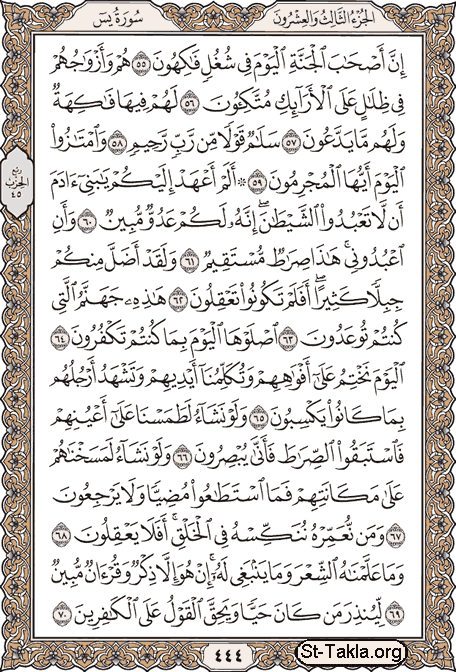 الجزء الثالث والعشرون
سورة يس
إِنَّ أَصْحَٰبَ ٱلْجَنَّةِ ٱلْيَوْمَ فِى شُغُلٍ فَٰكِهُونَ ٥٥ هُمْ وَأَزْوَٰجُهُمْ
فِى ظِلَٰلٍ عَلَى ٱلْأَرَآئِكِ مُتَّكِـُٔونَ ٥٦ لَهُمْ فِيهَا فَٰكِهَةٌ
وَلَهُم مَّا يَدَّعُونَ ٥٧ سَلَٰمٌ قَوْلًا مِّن رَّبٍّ رَّحِيمٍ ٥٨ وَٱمْتَٰزُوا۟
ٱلْيَوْمَ أَيُّهَا ٱلْمُجْرِمُونَ ٥٩ ۞ أَلَمْ أَعْهَدْ إِلَيْكُمْ يَٰبَنِىٓ ءَادَمَ
أَن لَّا تَعْبُدُوا۟ ٱلشَّيْطَٰنَ ۖ إِنَّهُۥ لَكُمْ عَدُوٌّ مُّبِينٌ ٦٠ وَأَنِ
ٱعْبُدُونِى ۚ هَٰذَا صِرَٰطٌ مُّسْتَقِيمٌ ٦١ وَلَقَدْ أَضَلَّ مِنكُمْ
جِبِلًّا كَثِيرًا ۖ أَفَلَمْ تَكُونُوا۟ تَعْقِلُونَ ٦٢ هَٰذِهِۦ جَهَنَّمُ ٱلَّتِى
كُنتُمْ تُوعَدُونَ ٦٣ ٱصْلَوْهَا ٱلْيَوْمَ بِمَا كُنتُمْ تَكْفُرُونَ ٦٤
ٱلْيَوْمَ نَخْتِمُ عَلَىٰٓ أَفْوَٰهِهِمْ وَتُكَلِّمُنَآ أَيْدِيهِمْ وَتَشْهَدُ أَرْجُلُهُم
بِمَا كَانُوا۟ يَكْسِبُونَ ٦٥ وَلَوْ نَشَآءُ لَطَمَسْنَا عَلَىٰٓ أَعْيُنِهِمْ
فَٱسْتَبَقُوا۟ ٱلصِّرَٰطَ فَأَنَّىٰ يُبْصِرُونَ ٦٦ وَلَوْ نَشَآءُ لَمَسَخْنَٰهُمْ
عَلَىٰ مَكَانَتِهِمْ فَمَا ٱسْتَطَٰعُوا۟ مُضِيًّا وَلَا يَرْجِعُونَ
٦٧ وَمَن نُّعَمِّرْهُ نُنَكِّسْهُ فِى ٱلْخَلْقِ ۖ أَفَلَا يَعْقِلُونَ ٦٨
وَمَا عَلَّمْنَٰهُ ٱلشِّعْرَ وَمَا يَنۢبَغِى لَهُۥٓ ۚ إِنْ هُوَ إِلَّا ذِكْرٌ وَقُرْءَانٌ مُّبِينٌ
٦٩ لِّيُنذِرَ مَن كَانَ حَيًّا وَيَحِقَّ ٱلْقَوْلُ عَلَى ٱلْكَٰفِرِينَ ٧٠
ربع
الحزب
٤٥
٤٤٤
St-Takla.org